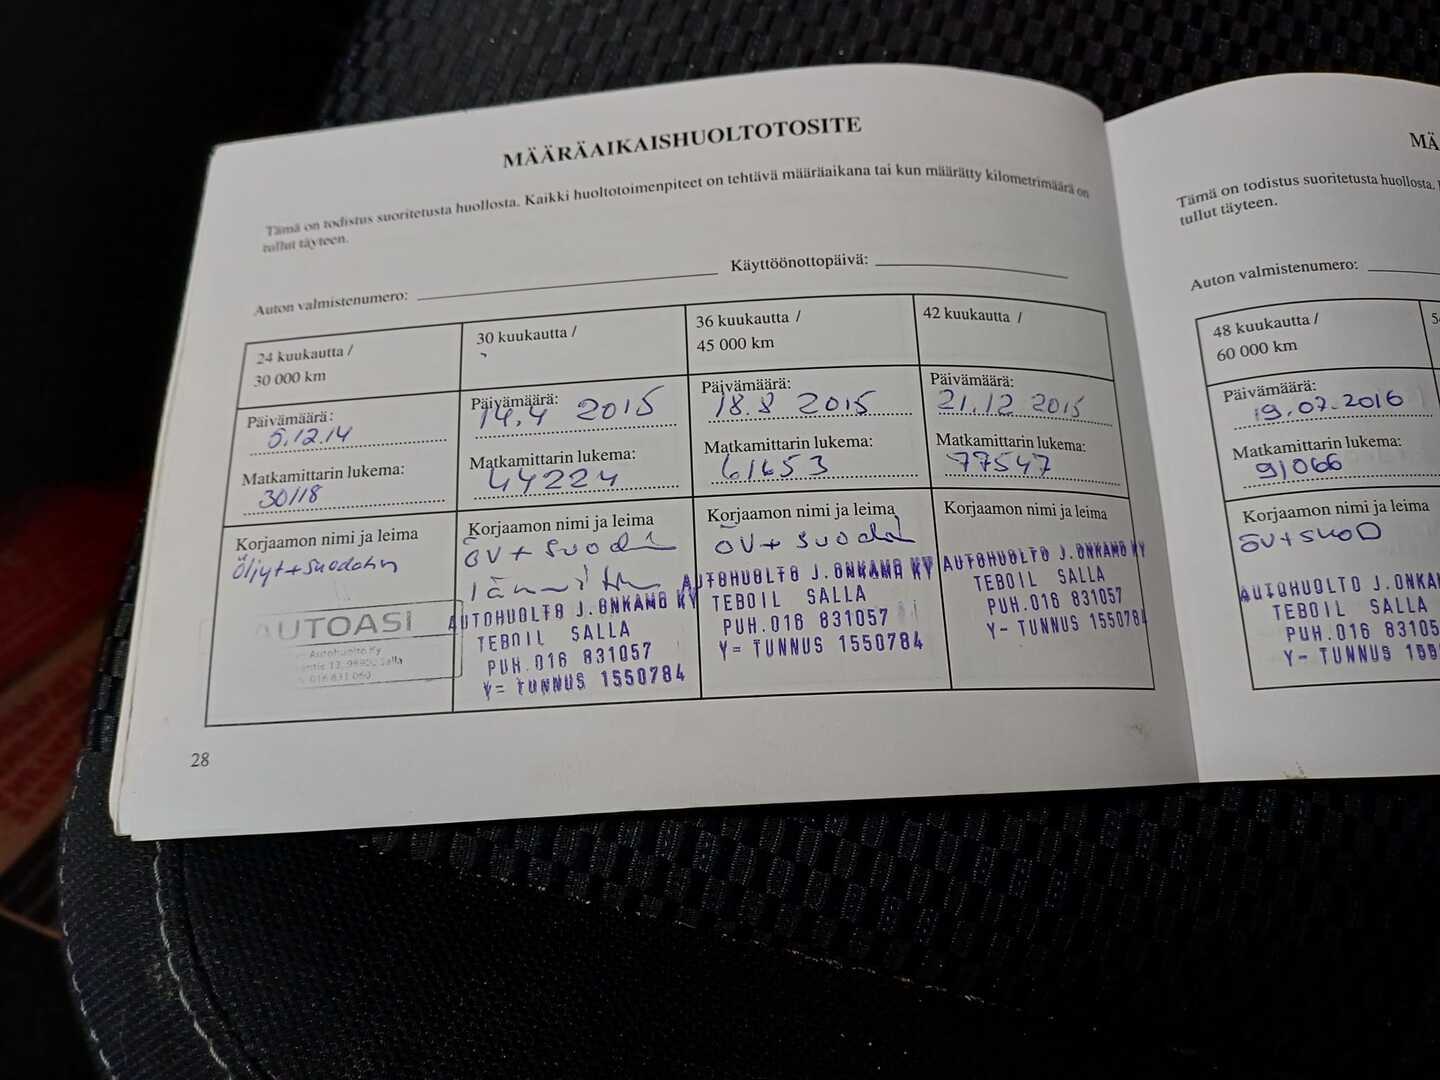 MÄÄRÄAIKAISHUOLTOTOSITE
Tämä on todistus suoritetusta huollosta. Kaikki huoltotoimenpiteet on tehtävä määräaikana tai kun määrätty kilometrimäärä on
tullut täyteen.
Auton valmistenumero: Käyttöönottopäivä:
24 kuukautta /
30 000 km
Päivämäärä:
5.12.14
Matkamittarin lukema:
30118
Korjaamon nimi ja leima
Öljyt+suodatin
AUTOASI
Autohuolto Ky
Salla
30 kuukautta /
Päivämäärä:
14.4 2015
Matkamittarin lukema:
44224
Korjaamon nimi ja leima
ÖV + suod
AUTOHUOLTO J.ONKAMO KY
TEBOIL SALLA
PUH.016 831057
Y= TUNNUS 1550784
36 kuukautta /
45 000 km
Päivämäärä:
18.8 2015
Matkamittarin lukema:
61653
Korjaamon nimi ja leima
ÖV + suod
AUTOHUOLTO J.ONKAMO KY
TEBOIL SALLA
PUH.016 831057
Y= TUNNUS 1550784
42 kuukautta /
Päivämäärä:
21.12 2015
Matkamittarin lukema:
77547
Korjaamon nimi ja leima
AUTOHUOLTO J.ONKAMO KY
TEBOIL SALLA
PUH.016 831057
Y- TUNNUS 1550784
28
MÄ
Tämä on todistus suoritetusta huollosta.
tullut täyteen.
Auton valmistenumero:
48 kuukautta /
60 000 km
Päivämäärä:
19.07.2016
Matkamittarin lukema:
91066
Korjaamon nimi ja leima
ÖV+SUOD
AUTOHUOLTO J.ONKA
TEBOIL SALLA
PUH.016 83105
Y- TUNNUS 155